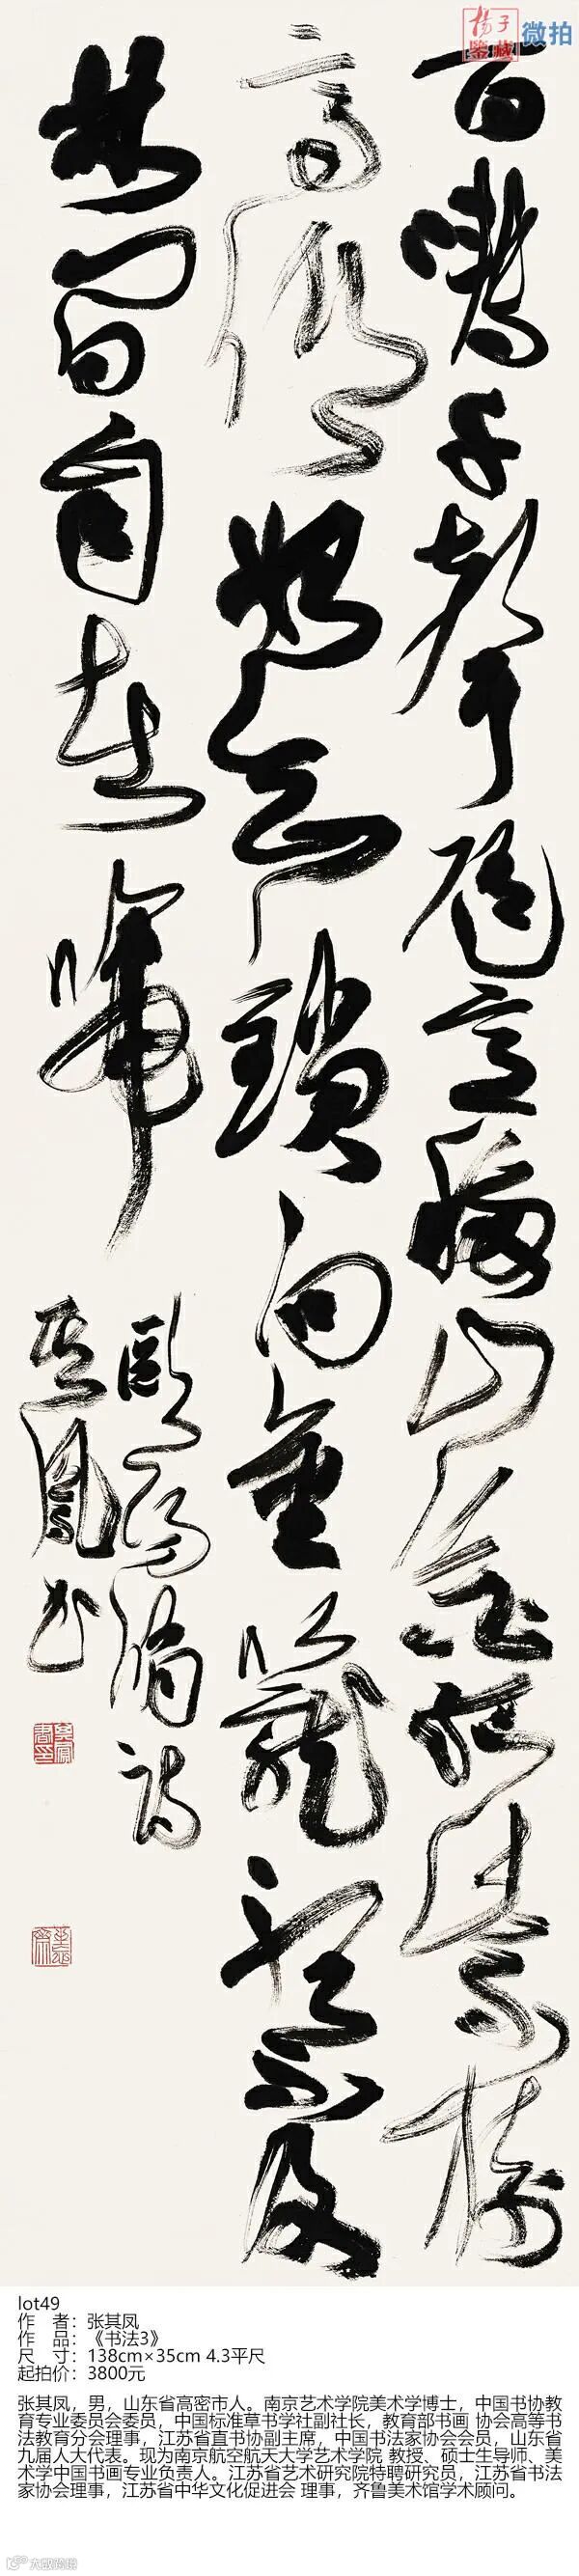 楊子
鑒藏
微拍
百囀千聲隨意移山花紅紫樹
高低始知鎖向金籠聽不及
林間自在啼
歐陽脩詩
其鳳書
lot49
作 者：张其凤
作 品：《书法3》
尺 寸：138cm×35cm 4.3平尺
起拍价：3800元
张其凤，男，山东省高密市人。南京艺术学院美术学博士，中国书协教
育专业委员会委员，中国标准草书学社副社长，教育部书画 协会高等书
法教育分会理事，江苏省直书协副主席，中国书法家协会会员，山东省
九届人大代表。现为南京航空航天大学艺术学院 教授、硕士生导师、美
术学中国书画专业负责人。江苏省艺术研究院特聘研究员，江苏省书法
家协会理事，江苏省中华文化促进会 理事，齐鲁美术馆学术顾问。
大数跨境